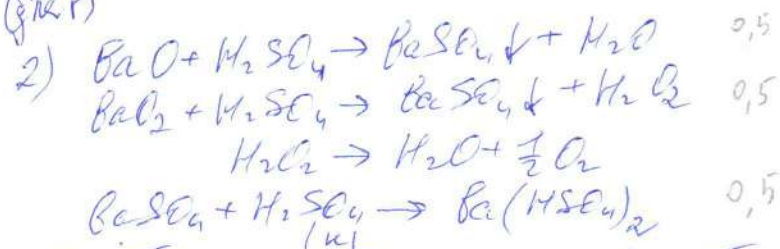 (для Г)
2) BaO + H₂SO₄ → BaSO₄↓ + H₂O 0,5
BaO₂ + H₂SO₄ → BaSO₄↓ + H₂O₂ 0,5
H₂O₂ → H₂O + ½O₂
BaSO₄ + H₂SO₄ (к) → Ba(HSO₄)₂ 0,5